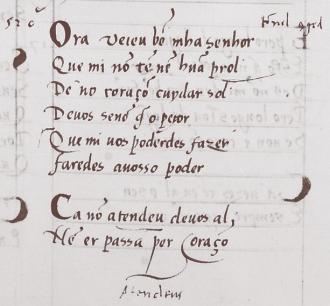 52 c
Ora veieu bẽ mha senhor
Que mi nõ tẽ nẽ hũa prol
De nõ coraçõ cuydar sol
Devos senõ q̃ o peor
Que mi vos poderdes fazer
Faredes avosso poder
Ca nõ atendeu devos al,
Nẽ er passa per coraçõ
Atendeu